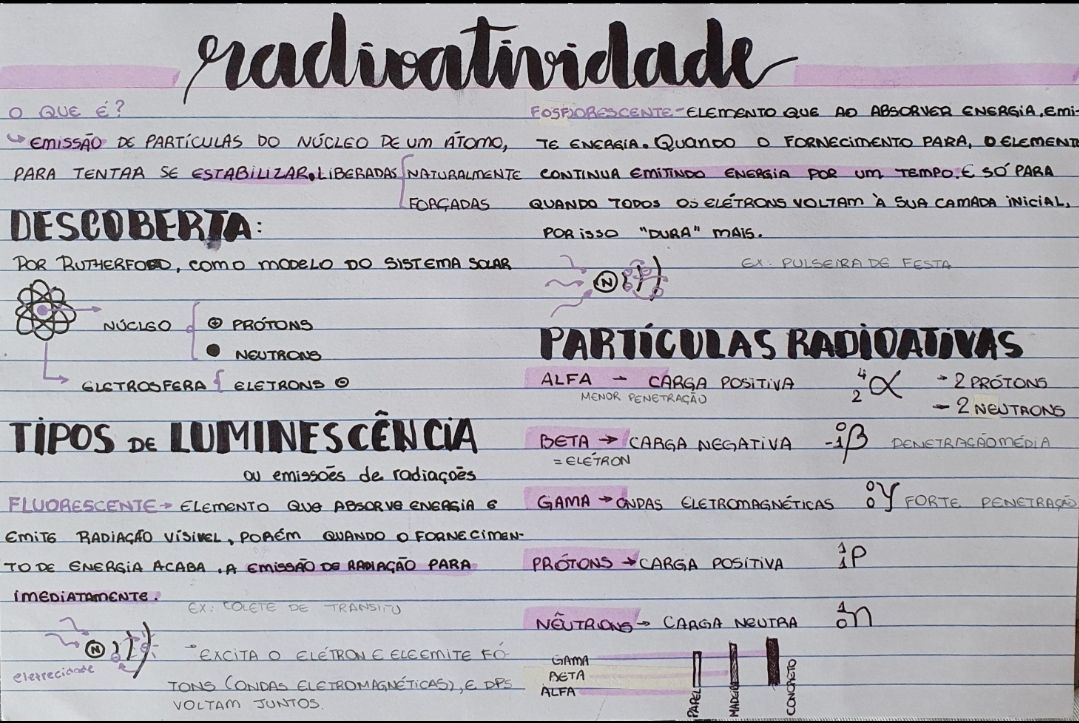 radioatividade
O QUE É?
↳ EMISSÃO DE PARTÍCULAS DO NÚCLEO DE UM ÁTOMO,
PARA TENTAR SE ESTABILIZAR. LIBERADAS NATURALMENTE
FORÇADAS
DESCOBERTA:
POR RUTHERFORD, COMO MODELO DO SISTEMA SOLAR
NÚCLEO
⊕ PRÓTONS
● NEUTRONS
ELETROSFERA { ELETRONS ⊖
TIPOS DE LUMINESCÊNCIA
ou emissões de radiações
FLUORESCENTE → ELEMENTO QUE ABSORVE ENERGIA E
EMITE RADIAÇÃO VÍSIVEL, PORÉM QUANDO O FORNECIMEN-
TO DE ENERGIA ACABA, A EMISSÃO DE RADIAÇÃO PARA
IMEDIATAMENTE.
EX: COLETE DE TRANSITO
N
eletrecidade
EXCITA O ELÉTRON E ELE EMITE FÓ-
TONS (ONDAS ELETROMAGNÉTICAS), E DPS
VOLTAM JUNTOS.
FOSFORESCENTE - ELEMENTO QUE AO ABSORVER ENERGIA, EMI-
TE ENERGIA. QUANDO O FORNECIMENTO PARA, O ELEMENT
CONTINUA EMITINDO ENERGIA POR UM TEMPO. E SÓ PARA
QUANDO TODOS OS ELÉTRONS VOLTAM À SUA CAMADA INICIAL,
POR ISSO "DURA" MAIS.
EX: PULSEIRA DE FESTA
N
PARTÍCULAS RADIOATIVAS
ALFA → CARGA POSITIVA ⁴₂α → 2 PRÓTONS
MENOR PENETRAÇÃO
→ 2 NEUTRONS
BETA → CARGA NEGATIVA ⁰₋₁β PENETRAÇÃO MÉDIA
= ELÉTRON
GAMA → ONDAS ELETROMAGNÉTICAS ⁰₀γ FORTE PENETRAÇÃO
PRÓTONS → CARGA POSITIVA ¹₁P
NÊUTRIONS → CARGA NEUTRA ¹₀n
GAMA
BETA
ALFA
PAPEL
MADEIRA
CONCRETO